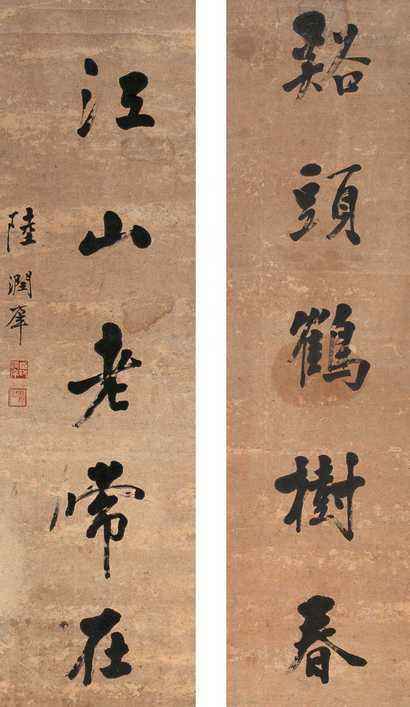 谿頭鶴樹春
江山老常在
陸潤庠